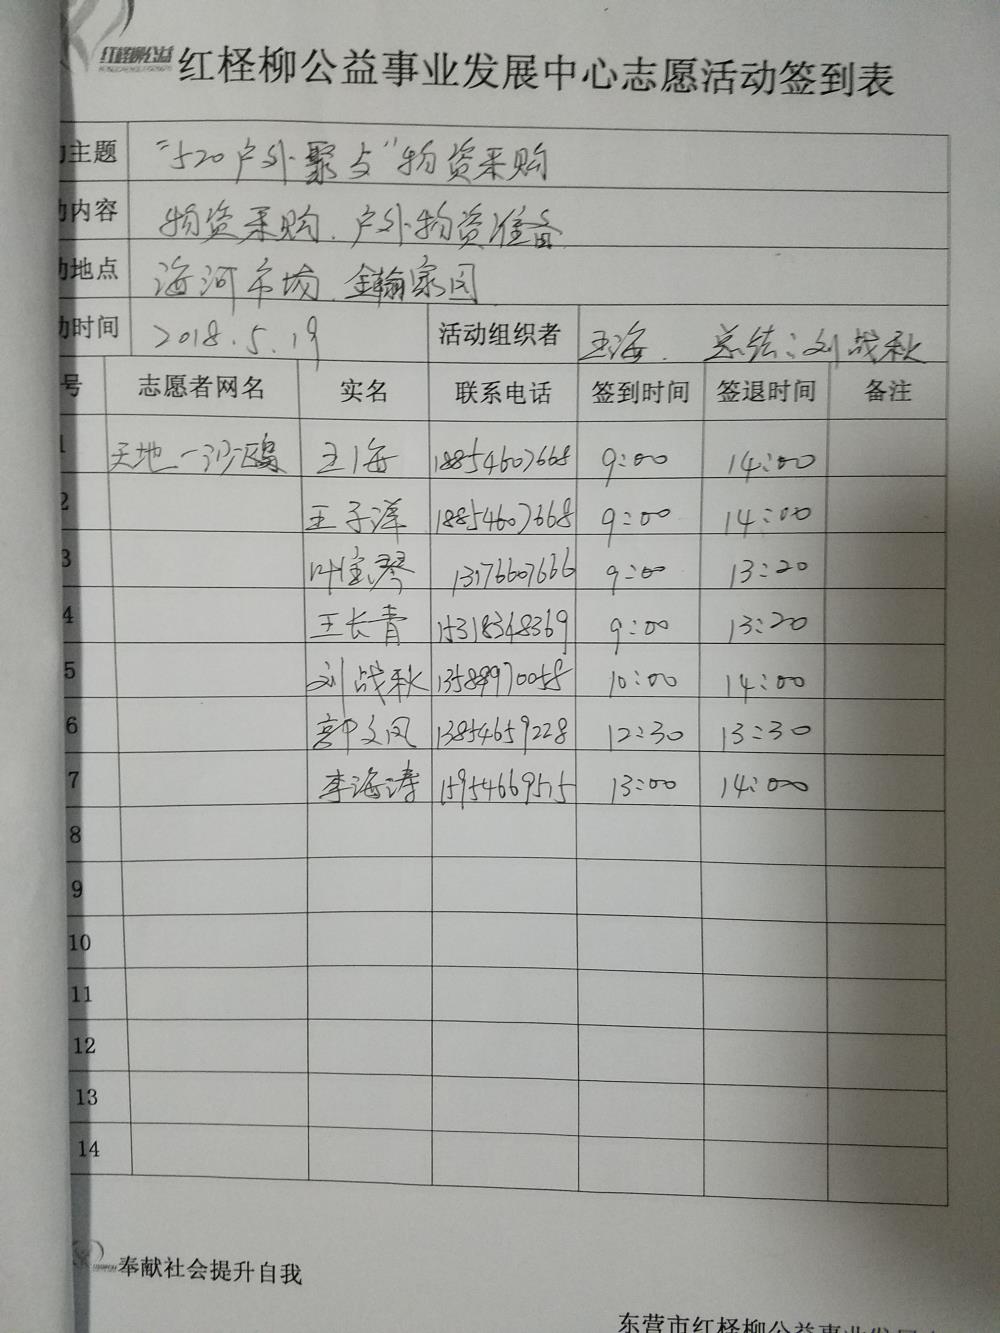 红柽柳公益 红柽柳公益事业发展中心志愿活动签到表
主题 "520户外聚与"物资采购
内容 物资采购.户外物资准备
地点 海河市场.金瀚家园
时间 2018.5.19 活动组织者 王海. 总结:刘战秋
号 志愿者网名 实名 联系电话 签到时间 签退时间 备注
1 天地一沙鸥 王海 18854607668 9:00 14:00
2 王子洋 18854607668 9:00 14:00
3 叶宝琴 13176607666 9:00 13:20
4 王长青 15318348369 9:00 13:20
5 刘战秋 13589970058 10:00 14:00
6 文凤 13854659228 12:30 13:30
7 李海涛 15954669515 13:00 14:00
8
9
10
11
12
13
14
奉献社会提升自我
东营市红柽柳公益事业发展